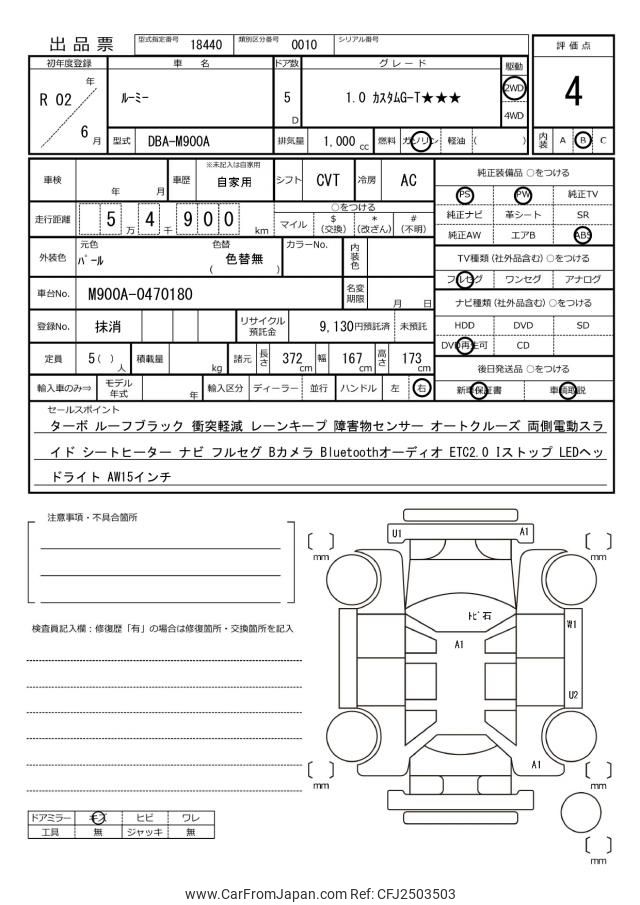 出品票 型式指定番号 18440 類別区分番号 0010 シリアル番号
評価点
初年度登録 車名 ドア数 グレード 駆動
R 02 年 6 月 ルーミー 5 D 1.0 カスタムG-T★★★ 2WD 4WD
4
型式 DBA-M900A 排気量 1,000 cc 燃料 ガソリン 軽油 ( )
内装 A B C
車検 年 月 車歴 ※未記入は自家用 自家用 シフト CVT 冷房 AC
純正装備品 ○をつける
PS PW 純正TV
純正ナビ 革シート SR
純正AW エアB ABS
走行距離 5 万 4 千 9 0 0 km
○をつける
マイル $ (交換) * (改ざん) # (不明)
外装色 元色 パール 色替 色替無 ( ) カラーNo. 内装色
TV種類 (社外品含む) ○をつける
フルセグ ワンセグ アナログ
車台No. M900A-0470180 名変期限 月 日
ナビ種類 (社外品含む) ○をつける
HDD DVD SD
DVD再生可 CD
登録No. 抹消 リサイクル預託金 9,130円預託済 未預託
定員 5 ( ) 人 積載量 kg 諸元 長さ 372 cm 幅 167 cm 高さ 173 cm
後日発送品 ○をつける
新車保証書 車輌取説
輸入車のみ⇒ モデル年式 年 輸入区分 ディーラー 並行 ハンドル 左 右
セールスポイント
ターボ ルーフブラック 衝突軽減 レーンキープ 障害物センサー オートクルーズ 両側電動スラ
イド シートヒーター ナビ フルセグ Bカメラ Bluetoothオーディオ ETC2.0 Iストップ LEDヘッ
ドライト AW15インチ
注意事項・不具合箇所
検査員記入欄：修復歴「有」の場合は修復箇所・交換箇所を記入
U1 A1
[ ] mm [ ] mm
トビ石
A1
W1
U2
A1
[ ] mm [ ] mm
[ ] mm
ドアミラー キズ ヒビ ワレ
工具 無 ジャッキ 無
www.CarFromJapan.com Ref: CFJ2503503